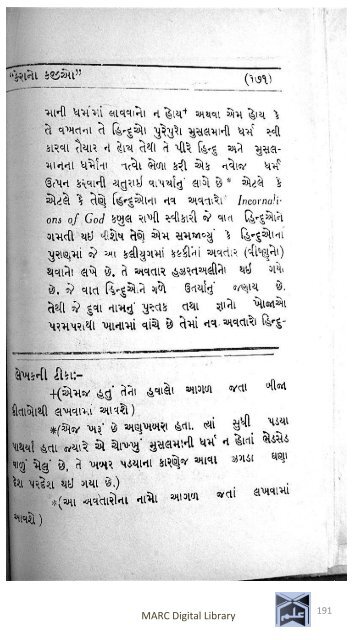 "કેરાનો કજીઓ" (૧૭૧)
માની ધર્મમાં લાવવાનો ન હોય+ અથવા એમ હોય કે
તે વખતના તે હિન્દુઓ પુરેપુરો મુસલમાની ધર્મ સ્વી
કારવા તૈયાર ન હોય તેથી તે પીરે હિન્દુ અને મુસલ-
માનના ધર્મોના તત્વો ભેળા કરી એક નવોજ ધર્મ
ઉત્પન કરવાની ચતુરાઈ વાપર્યાનું લાગે છે* એટલે કે
એટલે કે તેણે હિન્દુઓના નવ અવતારો Incornati-
ons of God કબુલ રાખી સ્વીકારી જે વાત હિન્દુઓને
ગમતી થઈ વીશેષ તેણે એમ સમજાવ્યું કે હિન્દુઓનાં
પુરાણમાં જે આ કલીયુગમાં કલ્કીનો અવતાર (વીષ્ણુનો)
થવાનો લખે છે, તે અવતાર હઝરતઅલીનો થઈ ગયો
છે, જે વાત હિન્દુઓને ગળે ઉતર્યાનું જણાય છે.
તેથી જે દુવા નામનું પુસ્તક તથા જ્ઞાનો ખોજાઓ
પરમપરાથી ખાનામાં વાંચે છે તેમાં નવ અવતારો હિન્દુ-
લેખકની ટીકા:-
+(એમજ હતું તેનો હવાલો આગળ જતા બીજા
કીતાબોથી લખવામાં આવશે)
*(એજ ખરૂં છે અણખબરા હતા. ત્યાં સુધી પડયા
પાથર્યા હતા જ્યારે એ ચોખ્ખું મુસલમાની ધર્મ ન હોતાં ભેડસેડ
વાળું મેલું છે, તે ખબર પડયાના કારણેજ આવા ઝગડા ઘણા
દેશ પરદેશ થઈ ગયા છે.)
*(આ અવતારોના નામો આગળ જતાં લખવામાં
આવશે)
MARC Digital Library
191